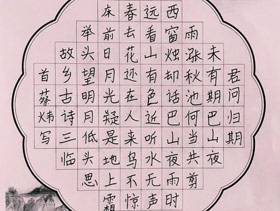 君问归期
未有期巴山夜
雨涨秋池何当共剪
西窗烛却话巴山夜雨时
远看山有色近听水无声
春去花还在人来鸟不惊
床前明月光疑是地上霜
举头望明月低头思
故乡古诗三临
首蔡炜写